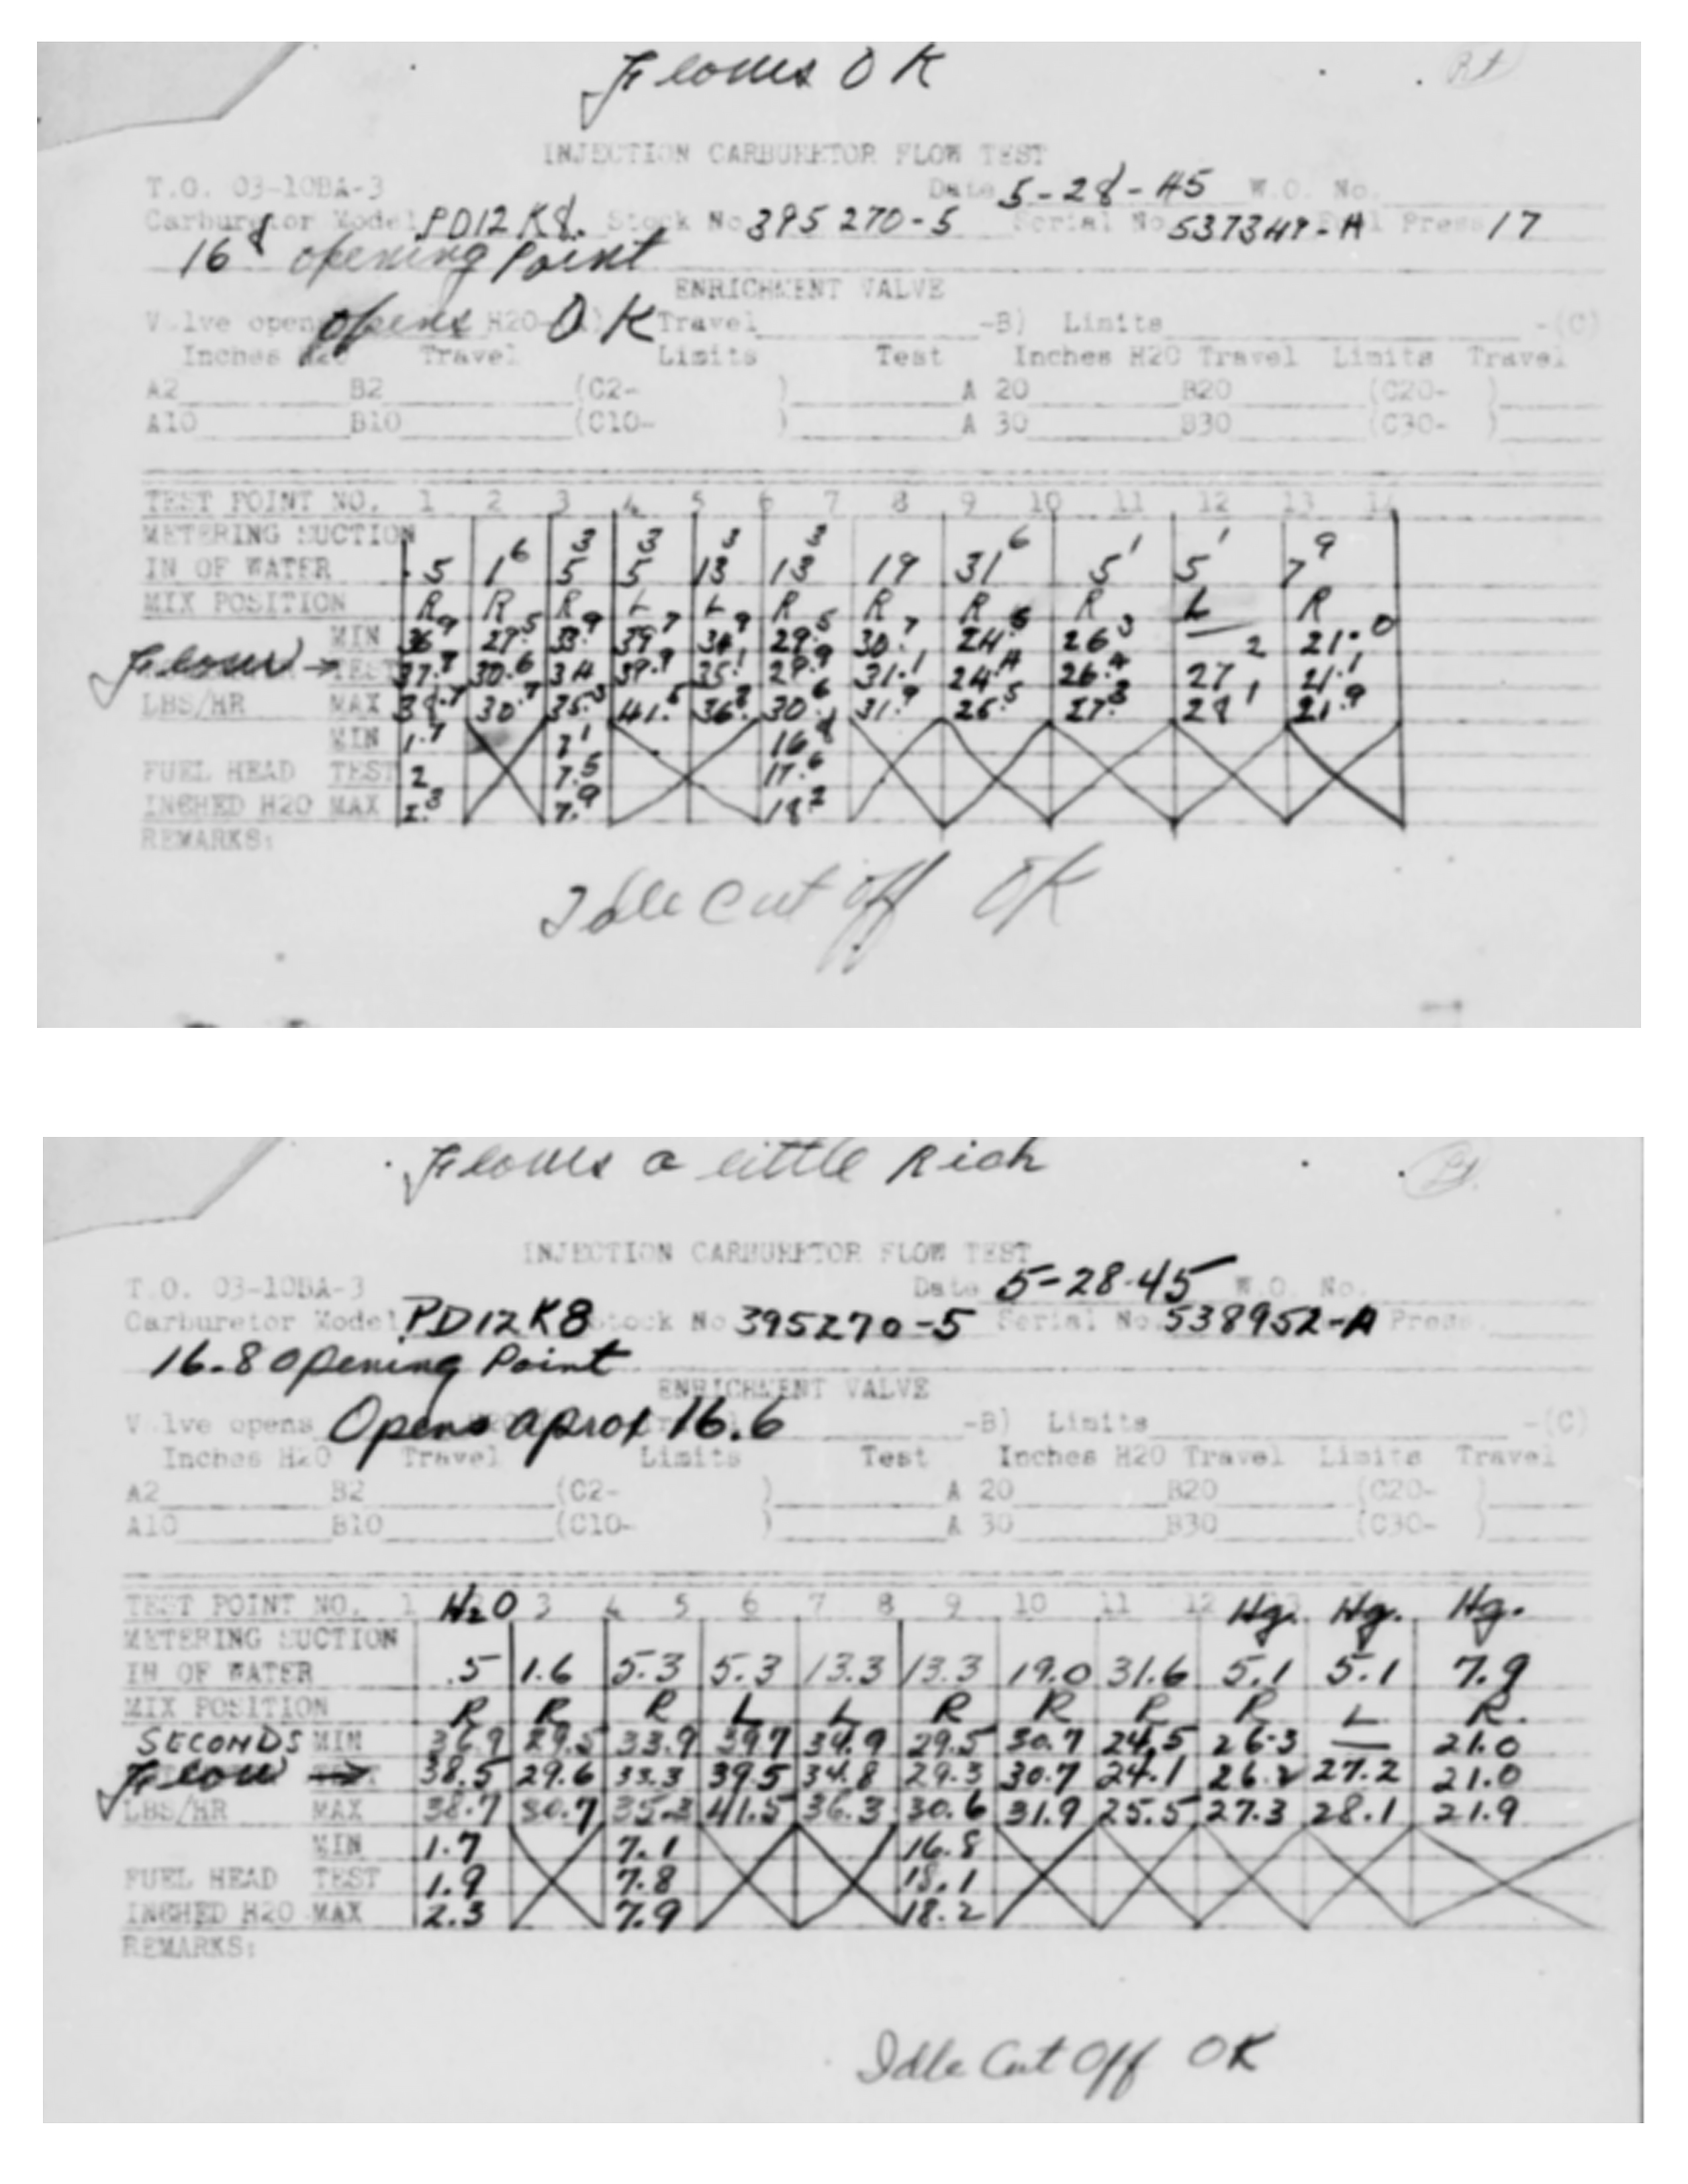 Flows OK
INJECTION CARBURETOR FLOW TEST
T.O. 03-10BA-3 Date 5-28-45 W.O. No.
Carburetor Model PD12K8. Stock No 395270-5 Serial No 537349-A Fuel Press 17
16.8 opening Point
ENRICHMENT VALVE
Valve opens opens H2O OK Travel -B) Limits -(C)
Inches H2O Travel Limits Test Inches H2O Travel Limits Travel
A2 B2 (C2- ) A 20 B20 (C20- )
A10 B10 (C10- ) A 30 B30 (C30- )
TEST POINT NO. 1 2 3 4 5 6 7 8 9 10 11 12 13 14
METERING SUCTION
IN OF WATER .5 1.6 5.3 5.3 13.3 13.3 19 31.6 5.1 5.1 7.9
MIX POSITION R R R L L R R R R L R
MIN 36.9 29.5 33.9 39.7 34.9 29.5 30.7 24.5 26.3 — 21.0
Flow → TEST 37.8 30.6 34 39.9 35.1 29.9 31.1 24.4 26.4 27.2 21.1
LBS/HR MAX 38.7 30.7 35.3 41.5 36.3 30.6 31.9 25.5 27.3 28.1 21.9
MIN 1.7 7.1 16.8
FUEL HEAD TEST 2 7.5 17.6
INCHED H2O MAX 2.3 7.9 18.2
REMARKS:
Idle Cut off OK
Flows a little Rich
INJECTION CARBURETOR FLOW TEST
T.O. 03-10BA-3 Date 5-28-45 W.O. No.
Carburetor Model PD12K8 Stock No 395270-5 Serial No. 538952-A Press
16.8 Opening Point
ENRICHMENT VALVE
Valve opens Opens aprox 16.6 -B) Limits -(C)
Inches H2O Travel Limits Test Inches H2O Travel Limits Travel
A2 B2 (C2- ) A 20 B20 (C20- )
A10 B10 (C10- ) A 30 B30 (C30- )
TEST POINT NO. 1 H2O 3 4 5 6 7 8 9 10 11 12 Hg. Hg. Hg.
METERING SUCTION
IN OF WATER .5 1.6 5.3 5.3 13.3 13.3 19.0 31.6 5.1 5.1 7.9
MIX POSITION R R R L L R R R R L R.
SECONDS MIN 36.9 29.5 33.9 39.7 34.9 29.5 30.7 24.5 26.3 — 21.0
Flow → 38.5 29.6 33.3 39.5 34.8 29.3 30.7 24.1 26.2 27.2 21.0
LBS/HR MAX 38.7 30.7 35.3 41.5 36.3 30.6 31.9 25.5 27.3 28.1 21.9
MIN 1.7 7.1 16.8
FUEL HEAD TEST 1.9 7.8 18.1
INCHED H2O MAX 2.3 7.9 18.2
REMARKS:
Idle Cut Off OK